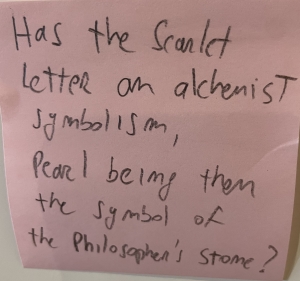 Has the Scarlet
Letter an alchemist
symbolism,
Pearl being then
the symbol of
the Philosopher's stone?